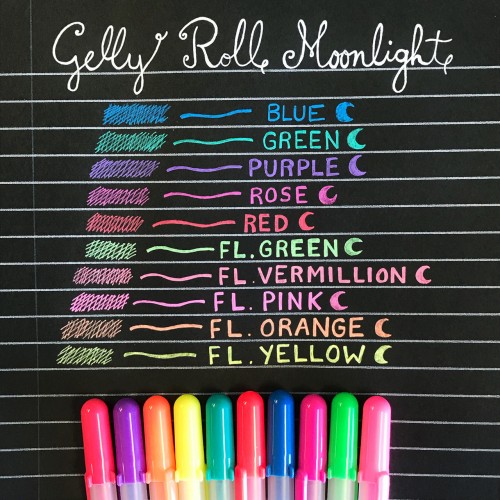 Gelly Roll Moonlight
BLUE
GREEN
PURPLE
ROSE
RED
FL.GREEN
FL.VERMILLION
FL. PINK
FL. ORANGE
FL. YELLOW